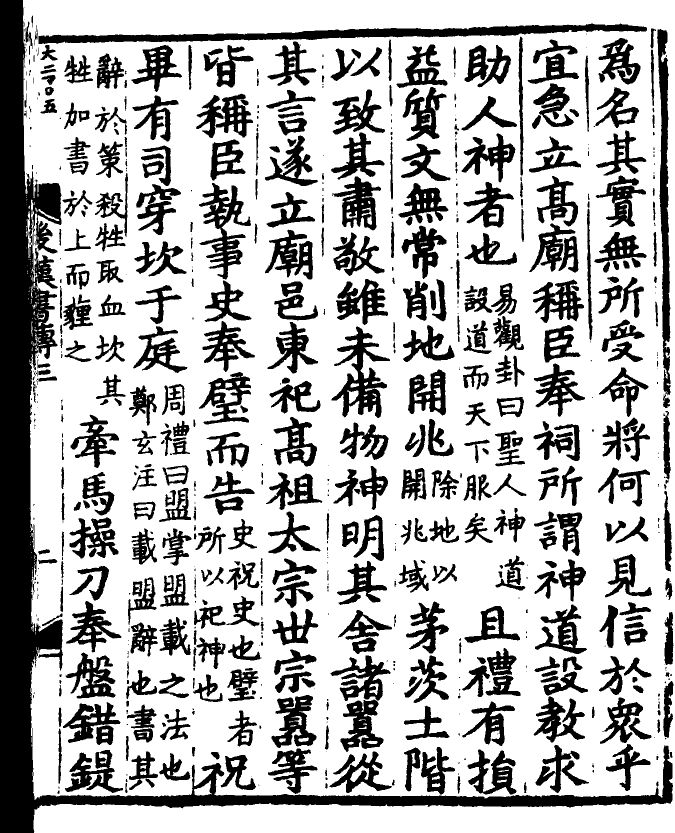 爲名其實無所受命將何以見信於衆乎
宜急立高廟稱臣奉祠所謂神道設教求
助人神者也易觀卦曰聖人神道設道而天下服矣且禮有損
益質文無常削地開兆除地以開兆域茅茨土階
以致其肅敬雖未備物神明其舍諸囂從
其言遂立廟邑東祀高祖太宗世宗囂等
皆稱臣執事史奉璧而告史祝史也璧者所以祀神也祝
畢有司穿坎于庭周禮曰盟掌盟載之法也鄭玄注曰載盟辭也書其
辭於策殺牲取血坎其牲加書於上而薶之牽馬操刀奉盤錯鍉
大二〇五
後漢書傳三
二